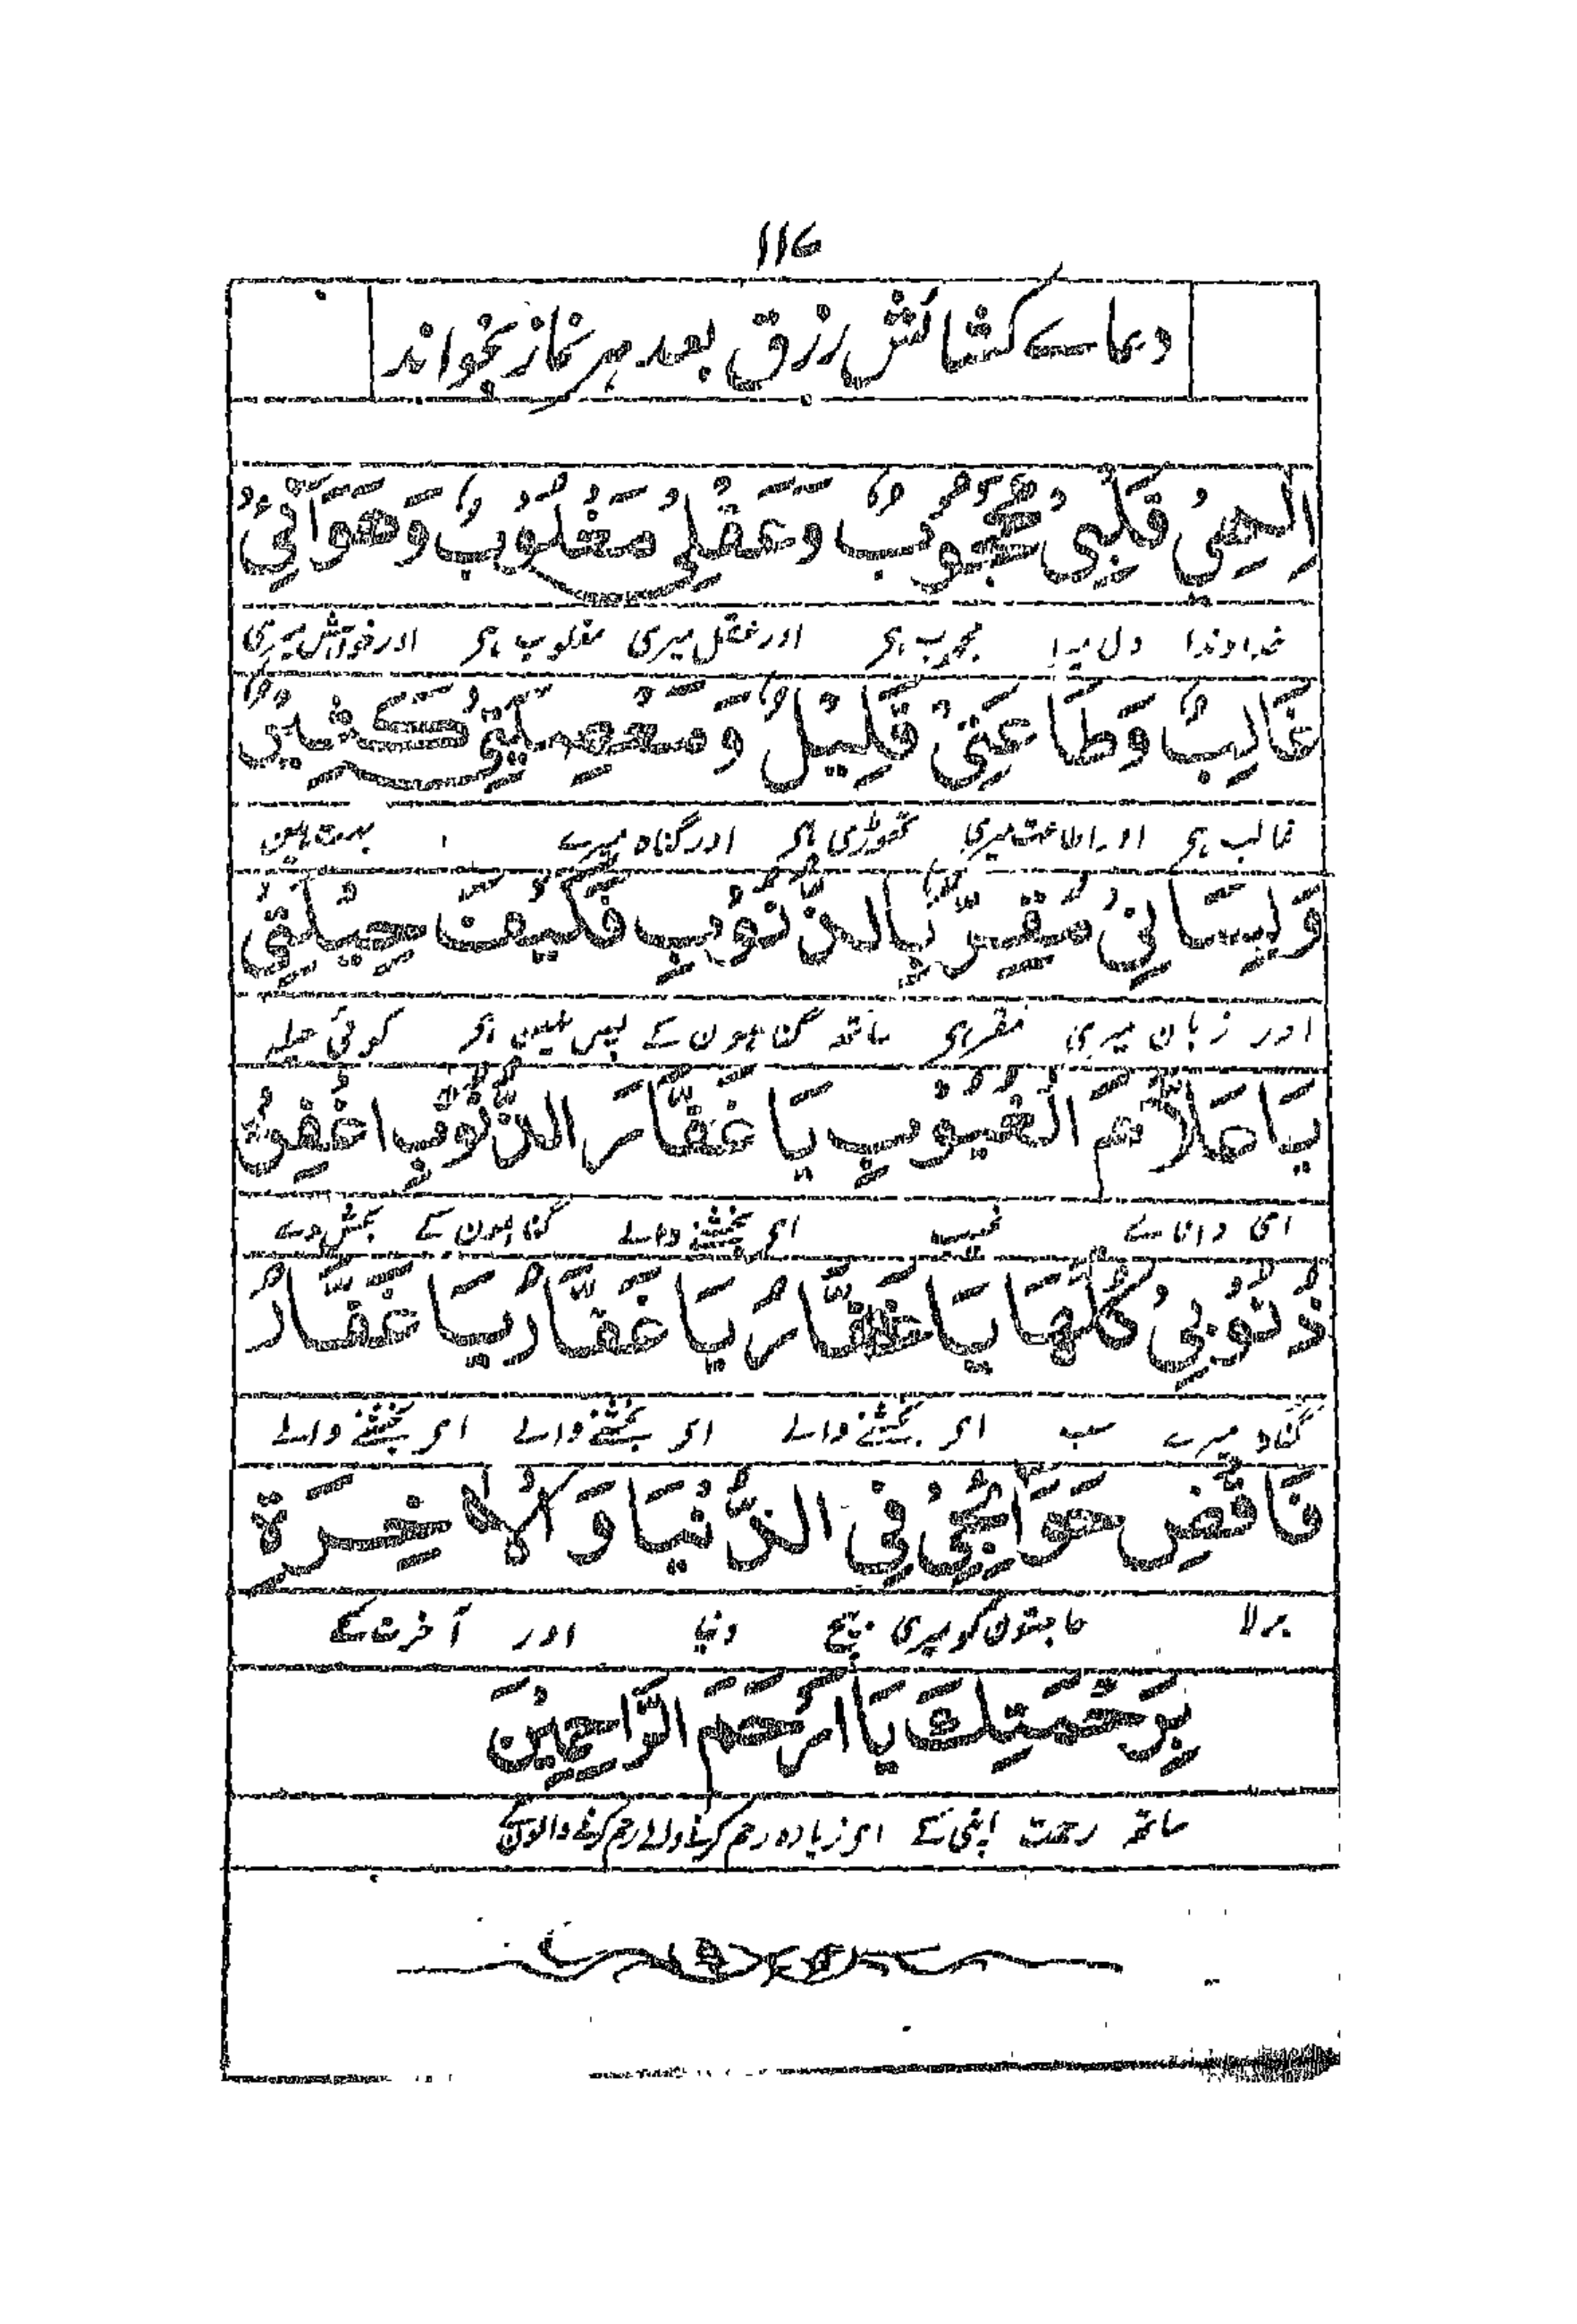 ۱۱۷
دعاے کشائش رزق بعد ہر نماز بخواند
اِلٰهِیْ قَلْبِیْ مَحْجُوْبٌ وَعَقْلِیْ مَغْلُوْبٌ وَهَوَآئِیْ
خداوندا دل میرا محجوب ہی اور عقل میری مغلوب ہی اور خواہش میری
غَالِبٌ وَطَاعَتِیْ قَلِیْلٌ وَمَعْصِیَتِیْ کَثِیْرٌ
غالب ہی اور اطاعت میری تھوڑی ہی اور گناہ میرے بہت ہین
وَلِسَانِیْ مُقِرٌّ بِالذُّنُوْبِ فَکَیْفَ حِیْلَتِیْ
اور زبان میری مقر ہی ساتھ گناہون کے پس نہین ہی کوئی حیلہ
یَا عَلَّامَ الْغُیُوْبِ یَا غَفَّارَ الذُّنُوْبِ اغْفِرْ
ای دانائے غیب ای بخشنے والے گناہون کے بخش دے
ذُنُوْبِیْ کُلَّهَا یَا غَفَّارُ یَا غَفَّارُ یَا غَفَّارُ
گناہ میرے سب ای بخشنے والے ای بخشنے والے ای بخشنے والے
فَاقْضِ حَوَآئِجِیْ فِی الدُّنْیَا وَالْاٰخِرَةِ
بر لا حاجتون کو میری بیچ دنیا اور آخرت کے
بِرَحْمَتِكَ یَا اَرْحَمَ الرَّاحِمِیْنَ
ساتھ رحمت اپنی کے ای زیادہ رحم کرنے والے رحم کرنے والون کے